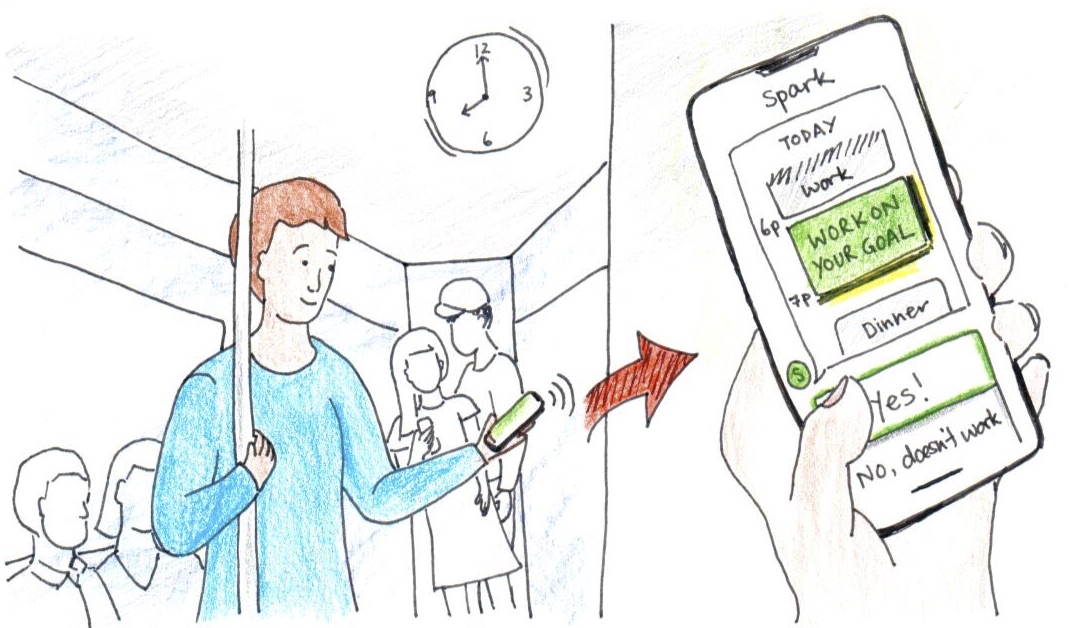 12
9
3
6
Spark
TODAY
Work
6p
WORK ON
YOUR GOAL
7p
Dinner
S
Yes!
No, doesn't work